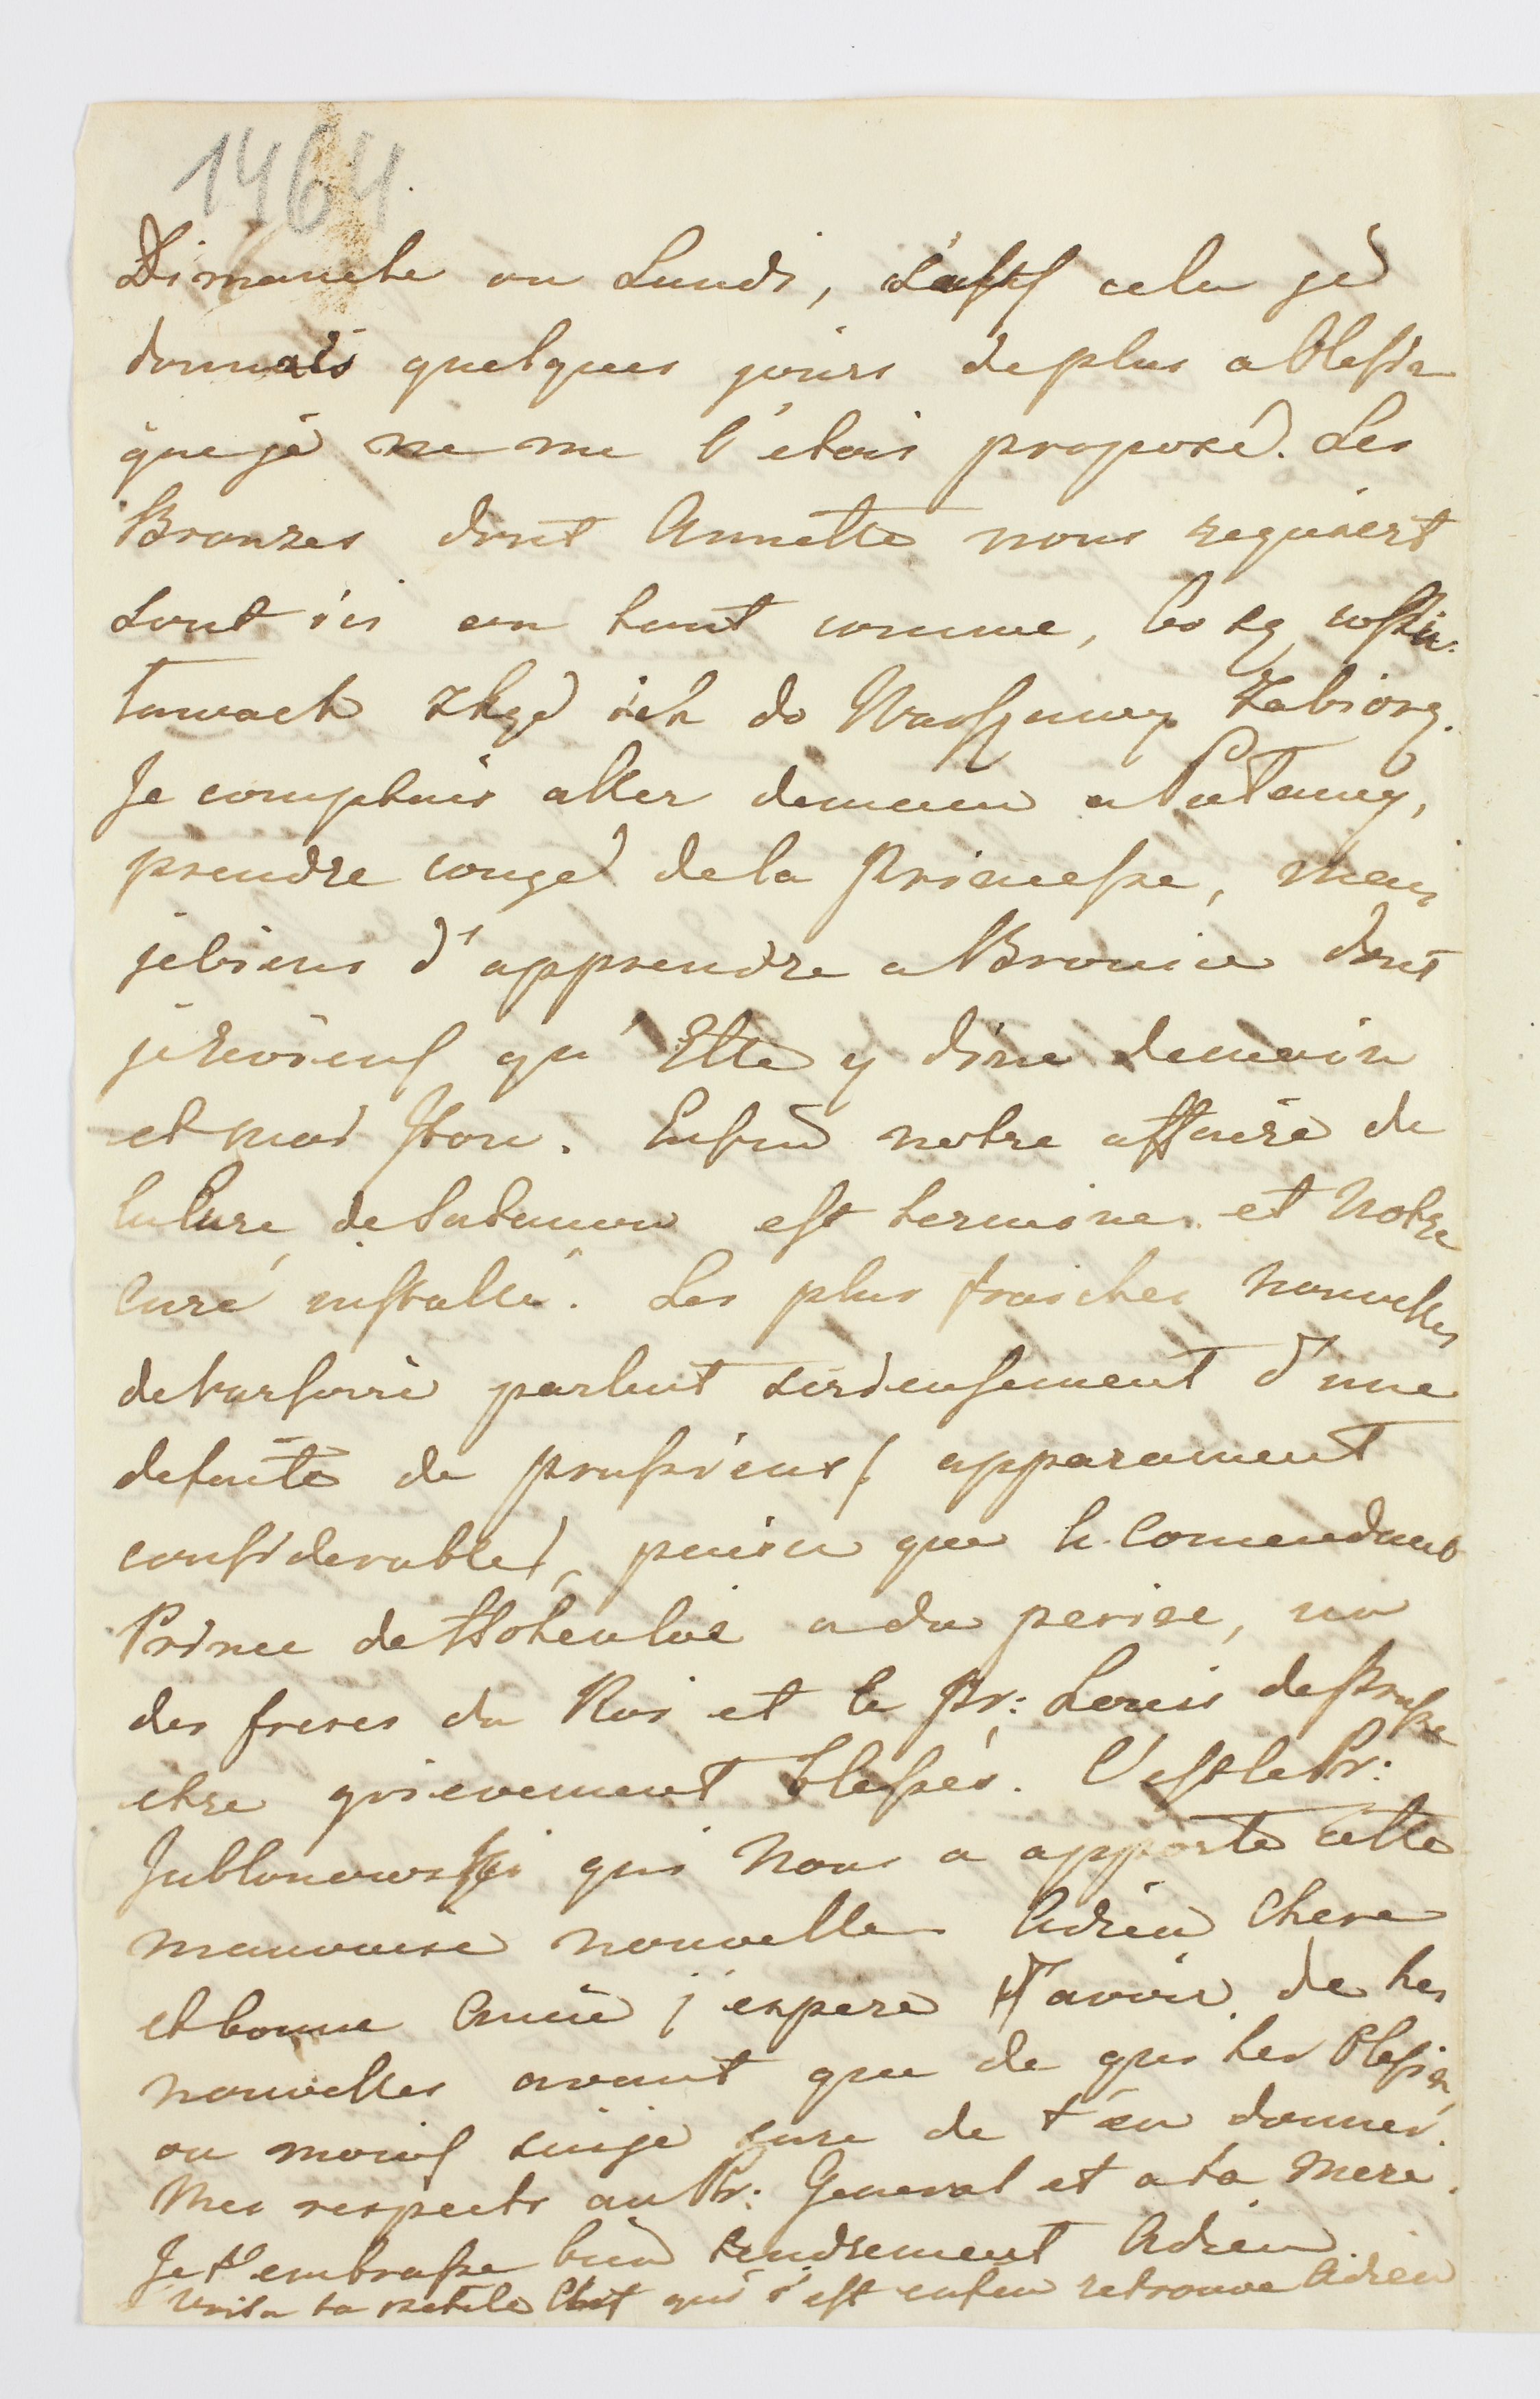 1464
Dimanche ou Lundi, cela je
donnais quelques jours de plus a Olesin
que je ne me l'etois proposé. Les
Bronzes dont Annette nous requiert
sont ici en tant comme, bo są w
towach skąd ich do Warszawy zabiorą.
Je comptais aller demain a Putawy,
prendre congé de la Princesse, mais
je viens d'apprendre a Bronice dont
je reviens qu'Elle y dine demain
et moi Enfin notre affaire de
la Cure de est terminé et Notre
Curé installé. Les plus fraiches nouvelles
de Varsovie parlent serieusement d'une
defaite de prussiens ( apparament
considerable) puis que le Comendant
Prince de Hohenloe a du perire, un
des freres du Roi et le Pr: Louis de Prusse
etre grievement blessés. C'est le Pr:
Jablonowski qui Nous a apporté cette
mauvaise nouvelle Adieu Chere
et bonne Amie j'espere d'avoir de tes
nouvelles avant que de quiter Olesin,
ou moins suije sure de t'en donner.
Mes respects au Pr: General et a ta Mere.
Je t'embrasse bien tendrement Adieu
Voila ta petite qui s'est enfin retrouve Adieu